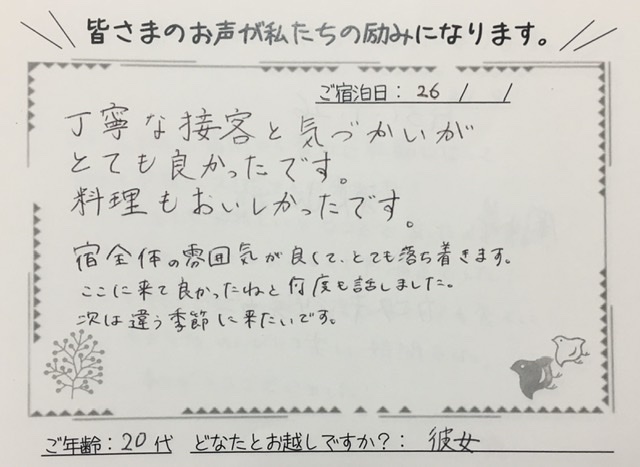 皆さまのお声が私たちの励みになります。
ご宿泊日: 26 / /
丁寧な接客と気づかいが
とても良かったです。
料理もおいしかったです。
宿全体の雰囲気が良くて、とても落ち着きます。
ここに来て良かったねと何度も話しました。
次は違う季節に来たいです。
ご年齢: 20代 どなたとお越しですか?: 彼女